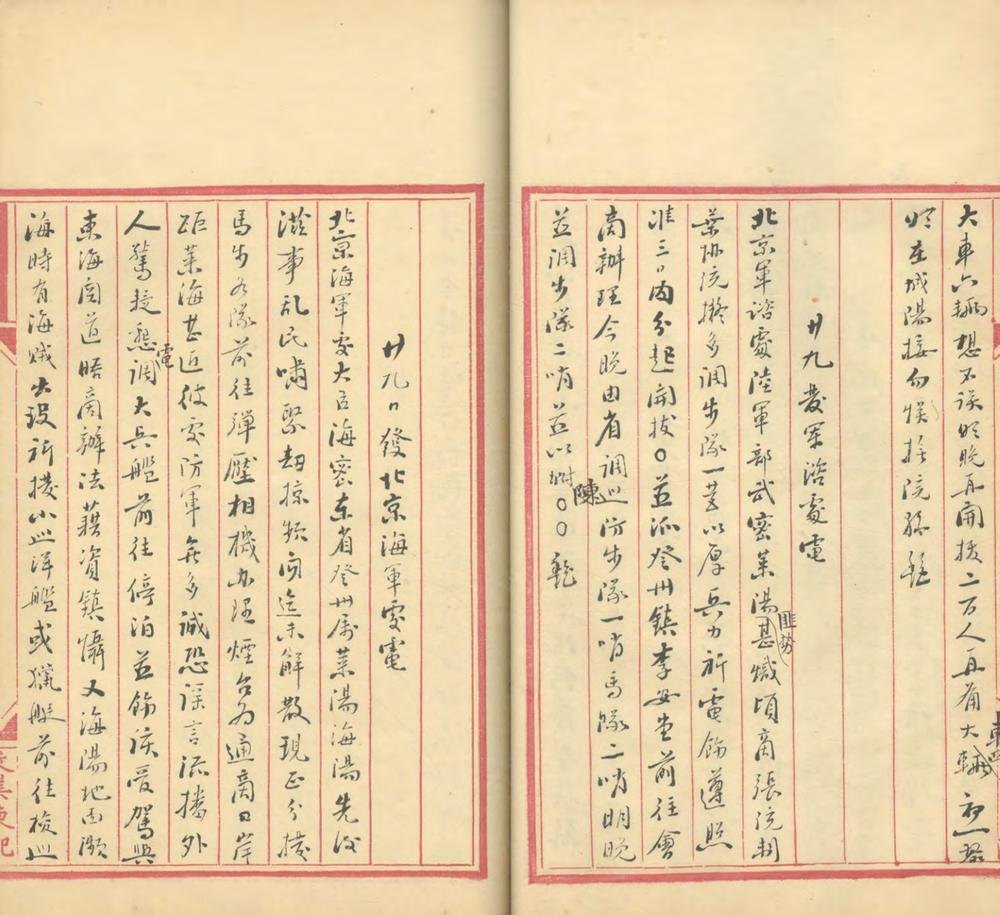 大車六輛想不誤明晚再開拔二百人再備大輛車四初一務
於在城陽接勿悞撫院孫
廿九發軍諮處電
北京軍諮處陸軍部武密萊陽匪勢甚熾頃商張統制
葉協統擬多調步隊一營以厚兵力祈電飭遵照
准三日內分起開拔〇並派登州鎮李安堂前往會
商辦理今晚由省調巡防步隊一哨馬隊二哨明晚
並調步隊二哨並以附陳〇〇
廿九日發北京海軍處電
北京海軍處大臣海密東省登州屬萊陽海陽先後
滋事亂民嘯聚劫掠頻聞迄未解散現正分撥
馬步各隊前往彈壓相機办理煙台為通商口岸
距萊海甚近彼處防軍無多誠恐謠言流播外
人驚擾懇電調大兵艦前往停泊並飭該管駕與
東海關道晤商辦法藉資鎮懾又海陽地面濒
海時有海賊出没祈撥小巡洋艦或獵艇前往檢巡